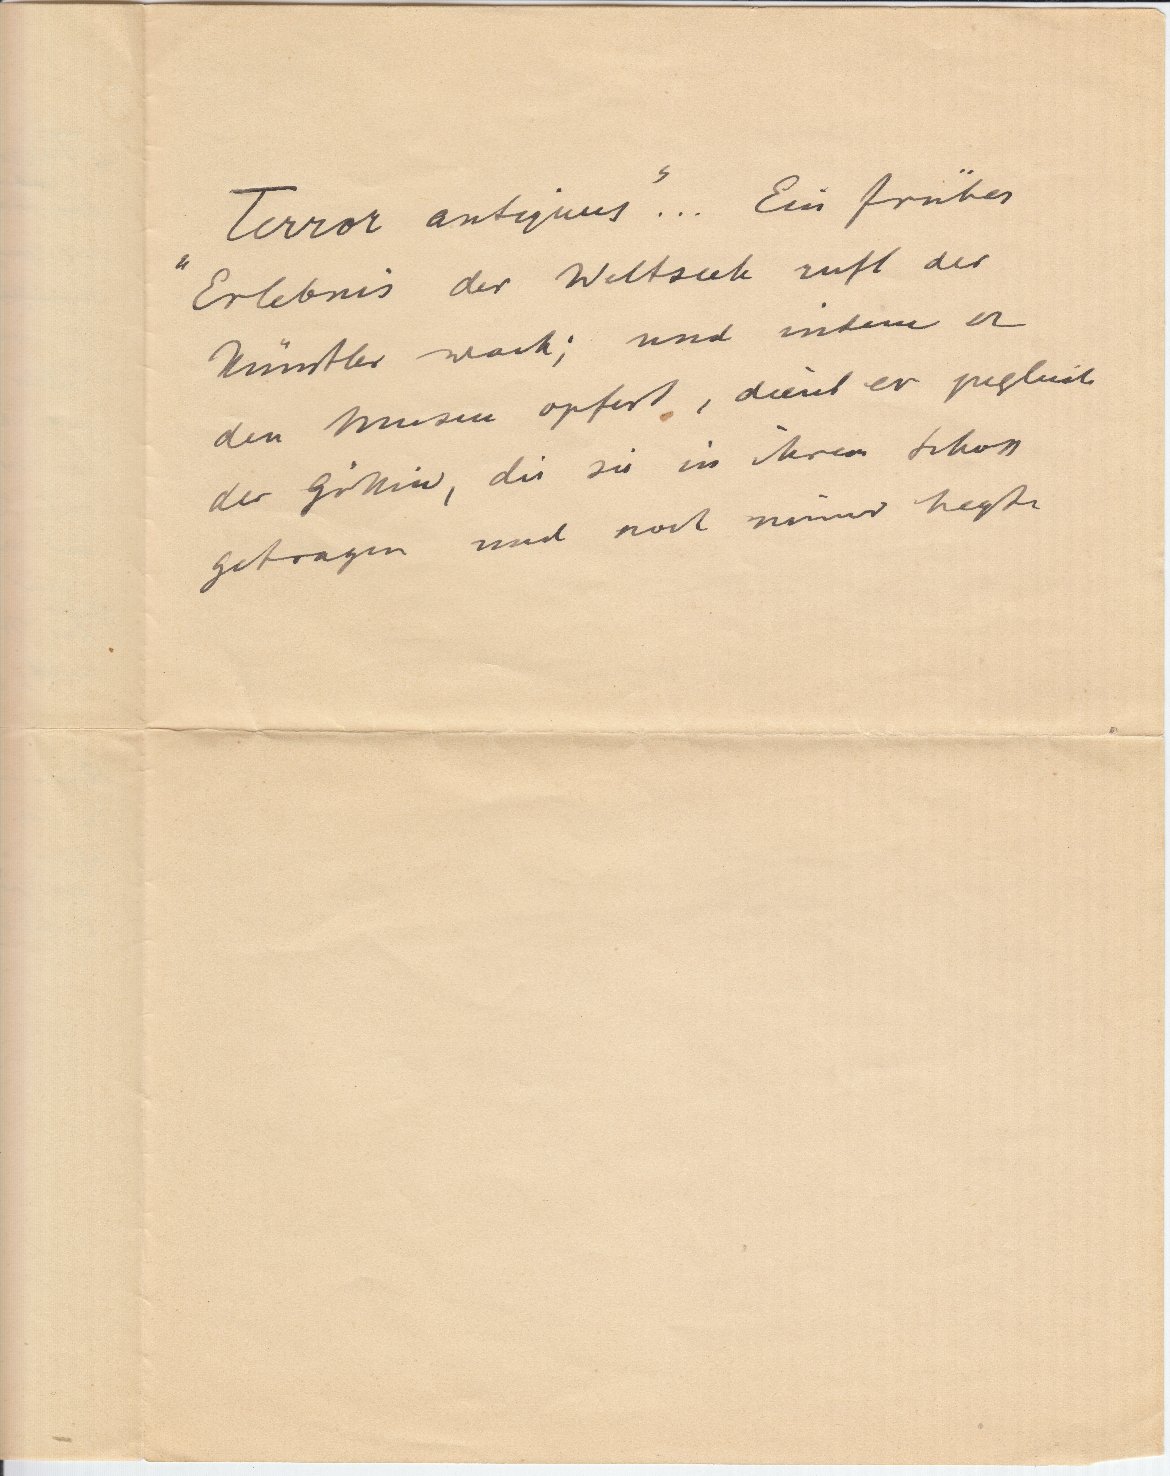 "Terror antiquus"... Ein frühes
Erlebnis der Weltseele ruft der
Künstler wach; und indem er
den Musen opfert, dient er zugleich
der Göttin, die sie in ihrem Schoß
getragen und noch immer hegt